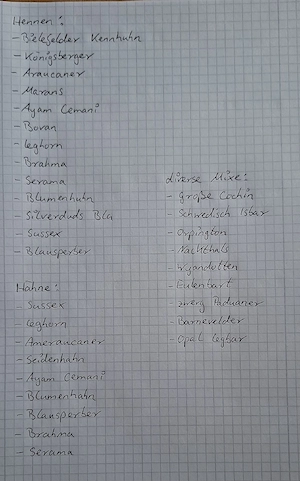 Hennen:
- Bielefelder Kennhuhn
- Königsberger
- Araucaner
- Marans
- Ayam Cemani
- Bovan
- Leghorn
- Brahma
- Serama
- Blumenhuhn
- Silverduds Bla
- Sussex
- Blausperber
Hähne:
- Sussex
- Leghorn
- Ameraucaner
- Seidenhahn
- Ayam Cemani
- Blumenhahn
- Blausperber
- Brahma
- Serama
diverse Mixe:
- große Cochin
- Schwedisch Isbar
- Orpington
- Nackthals
- Wyandotten
- Eulenbart
- zwerg Paduaner
- Barnevelder
- Opal Legbar